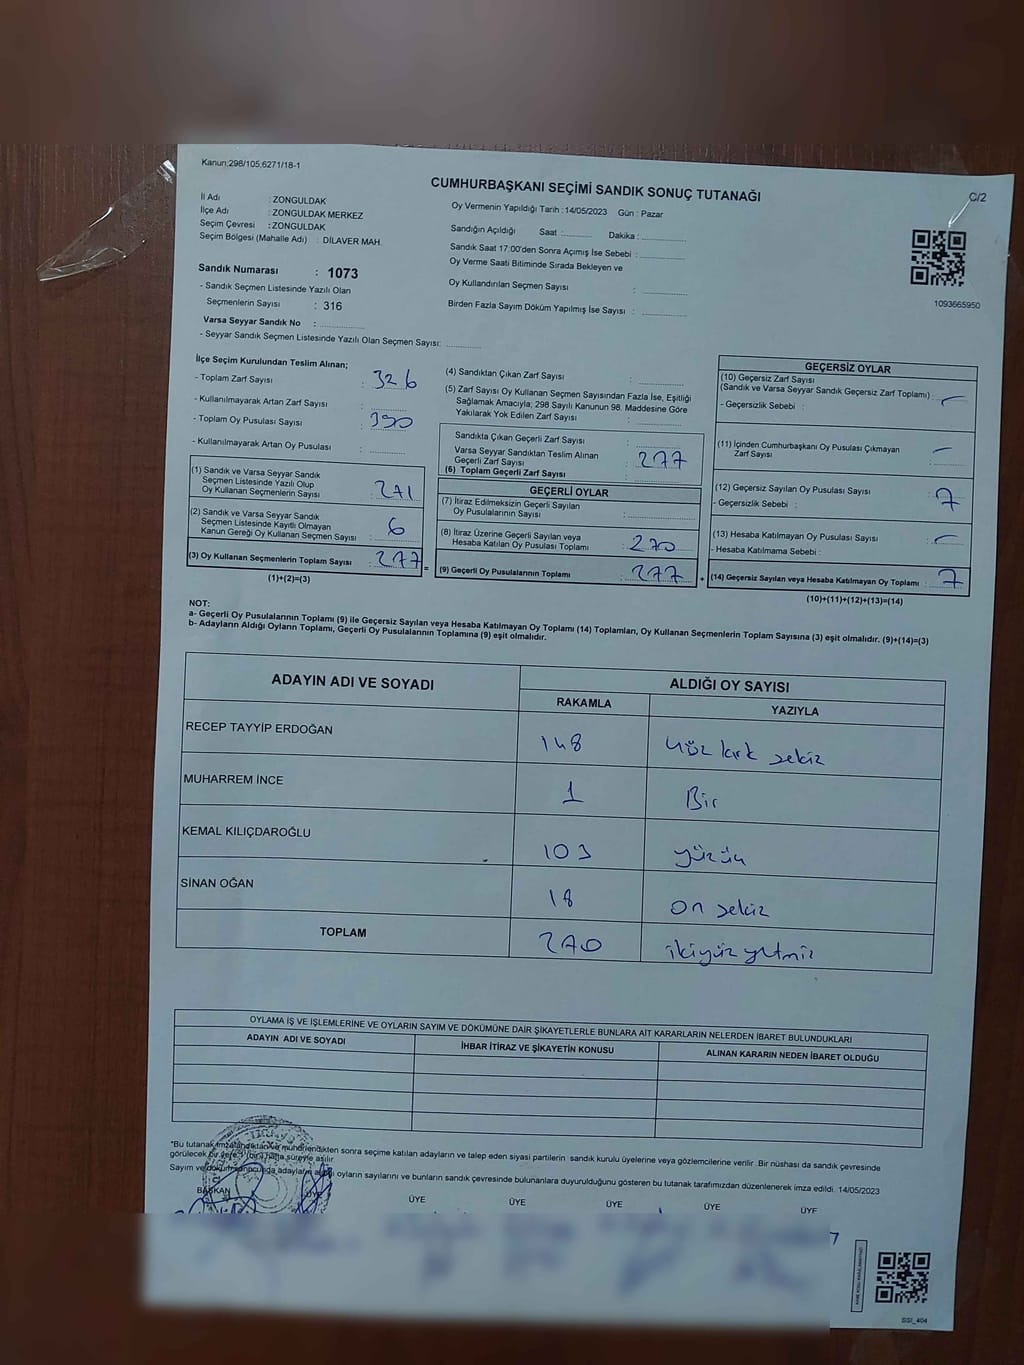 Kanun:298/105,6271/18-1
CUMHURBAŞKANI SEÇİMİ SANDIK SONUÇ TUTANAĞI
C/2
İl Adı : ZONGULDAK
İlçe Adı : ZONGULDAK MERKEZ
Seçim Çevresi : ZONGULDAK
Seçim Bölgesi (Mahalle Adı) : DİLAVER MAH.
Sandık Numarası : 1073
- Sandık Seçmen Listesinde Yazılı Olan
Seçmenlerin Sayısı : 316
Varsa Seyyar Sandık No :
- Seyyar Sandık Seçmen Listesinde Yazılı Olan Seçmen Sayısı:
Oy Vermenin Yapıldığı Tarih : 14/05/2023 Gün : Pazar
Sandığın Açıldığı Saat : Dakika :
Sandık Saat 17:00'den Sonra Açımış İse Sebebi :
Oy Verme Saati Bitiminde Sırada Bekleyen ve
Oy Kullandırılan Seçmen Sayısı :
Birden Fazla Sayım Döküm Yapılmış İse Sayısı :
1093665950
İlçe Seçim Kurulundan Teslim Alınan;
- Toplam Zarf Sayısı : 326
- Kullanılmayarak Artan Zarf Sayısı :
- Toplam Oy Pusulası Sayısı : 390
- Kullanılmayarak Artan Oy Pusulası :
(1) Sandık ve Varsa Seyyar Sandık
Seçmen Listesinde Yazılı Olup
Oy Kullanan Seçmenlerin Sayısı : 271
(2) Sandık ve Varsa Seyyar Sandık
Seçmen Listesinde Kayıtlı Olmayan
Kanun Gereği Oy Kullanan Seçmen Sayısı : 6
(3) Oy Kullanan Seçmenlerin Toplam Sayısı : 277
(1)+(2)=(3)
(4) Sandıktan Çıkan Zarf Sayısı :
(5) Zarf Sayısı Oy Kullanan Seçmen Sayısından Fazla İse, Eşitliği
Sağlamak Amacıyla; 298 Sayılı Kanunun 98. Maddesine Göre
Yakılarak Yok Edilen Zarf Sayısı :
Sandıkta Çıkan Geçerli Zarf Sayısı
Varsa Seyyar Sandıktan Teslim Alınan
Geçerli Zarf Sayısı : 277
(6) Toplam Geçerli Zarf Sayısı
GEÇERLİ OYLAR
(7) İtiraz Edilmeksizin Geçerli Sayılan
Oy Pusulalarının Sayısı :
(8) İtiraz Üzerine Geçerli Sayılan veya
Hesaba Katılan Oy Pusulası Toplamı : 270
= (9) Geçerli Oy Pusulalarının Toplamı : 277 +
GEÇERSİZ OYLAR
(10) Geçersiz Zarf Sayısı
(Sandık ve Varsa Seyyar Sandık Geçersiz Zarf Toplamı) : –
- Geçersizlik Sebebi :
(11) İçinden Cumhurbaşkanı Oy Pusulası Çıkmayan
Zarf Sayısı : –
(12) Geçersiz Sayılan Oy Pusulası Sayısı : 7
- Geçersizlik Sebebi :
(13) Hesaba Katılmayan Oy Pusulası Sayısı : –
- Hesaba Katılmama Sebebi :
(14) Geçersiz Sayılan veya Hesaba Katılmayan Oy Toplamı : 7
(10)+(11)+(12)+(13)=(14)
NOT:
a- Geçerli Oy Pusulalarının Toplamı (9) ile Geçersiz Sayılan veya Hesaba Katılmayan Oy Toplamı (14) Toplamları, Oy Kullanan Seçmenlerin Toplam Sayısına (3) eşit olmalıdır. (9)+(14)=(3)
b- Adayların Aldığı Oyların Toplamı, Geçerli Oy Pusulalarının Toplamına (9) eşit olmalıdır.
ADAYIN ADI VE SOYADI ALDIĞI OY SAYISI
RAKAMLA YAZIYLA
RECEP TAYYİP ERDOĞAN 148 Yüz kırk sekiz
MUHARREM İNCE 1 Bir
KEMAL KILIÇDAROĞLU 103 yüzüç
SİNAN OĞAN 18 on sekiz
TOPLAM 270 ikiyüz yetmiş
OYLAMA İŞ VE İŞLEMLERİNE VE OYLARIN SAYIM VE DÖKÜMÜNE DAİR ŞİKAYETLERLE BUNLARA AİT KARARLARIN NELERDEN İBARET BULUNDUKLARI
ADAYIN ADI VE SOYADI İHBAR İTİRAZ VE ŞİKAYETİN KONUSU ALINAN KARARIN NEDEN İBARET OLDUĞU
*Bu tutanak imzalandıktan ve mühürlendikten sonra seçime katılan adayların ve talep eden siyasi partilerin sandık kurulu üyelerine veya gözlemcilerine verilir. Bir nüshası da sandık çevresinde
görülecek bir yere 1 (bir) hafta süreyle asılır.
Sayım ve döküm sonucunda adayların aldığı oyların sayılarını ve bunların sandık çevresinde bulunanlara duyurulduğunu gösteren bu tutanak tarafımızdan düzenlenerek imza edildi. 14/05/2023
BAŞKAN ÜYE ÜYE ÜYE ÜYE ÜYE ÜYE
SSI_404